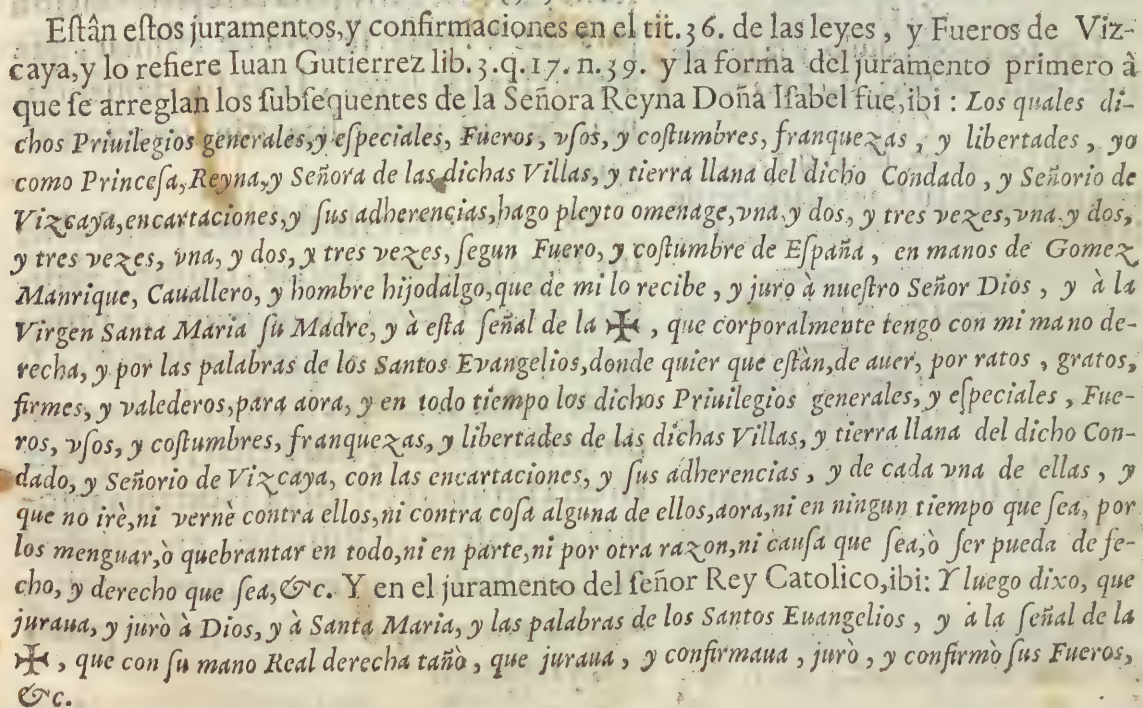 Eſtân eſtos juramentos,y confirmaciones en el tit.36. de las leyes, y Fueros de Viz-
caya,y lo refiere Iuan Gutierrez lib.3.q.17.n.39. y la forma del juramento primero à
que ſe arreglan los ſubſequentes de la Señora Reyna Doña Iſabel fue,ibi : Los quales di-
chos Priuilegios generales,y eſpeciales, Fueros, vſos, y coſtumbres, franquezas, y libertades, yo
como Princeſa,Reyna,y Señora de las dichas Villas, y tierra llana del dicho Condado, y Señorio de
Vizcaya,encartaciones,y ſus adherencias,hago pleyto omenage,vna.y dos, y tres vezes,vna.y dos,
y tres vezes, vna, y dos, y tres vezes, ſegun Fuero, y coſtumbre de Eſpaña, en manos de Gomez
Manrique, Cauallero, y hombre hijodalgo,que de mi lo recibe, y juro à nueſtro Señor Dios, y à la
Virgen Santa Maria ſu Madre, y à eſta ſeñal de la ✠, que corporalmente tengo con mi mano de-
recha, y por las palabras de los Santos Evangelios,donde quier que eſtàn,de auer, por ratos, gratos,
firmes, y valederos,para aora, y en todo tiempo los dichos Priuilegios generales, y eſpeciales, Fue-
ros, vſos, y coſtumbres, franquezas, y libertades de las dichas Villas, y tierra llana del dicho Con-
dado, y Señorio de Vizcaya, con las encartaciones, y ſus adherencias, y de cada vna de ellas, y
que no irè,ni vernè contra ellos,ni contra coſa alguna de ellos,aora,ni en ningun tiempo que ſea, por
los menguar,ò quebrantar en todo,ni en parte,ni por otra razon,ni cauſa que ſea,ò ſer pueda de fe-
cho, y derecho que ſea,&c. Y en el juramento del ſeñor Rey Catolico,ibi: Y luego dixo, que
juraua, y jurò à Dios, y à Santa Maria, y las palabras de los Santos Euangelios, y à la ſeñal de la
✠, que con ſu mano Real derecha tañò, que juraua, y confirmaua, jurò, y confirmò ſus Fueros,
&c.